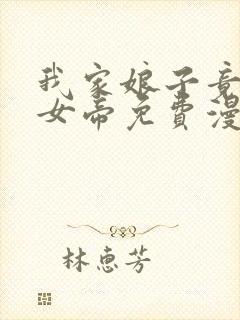 我家娘子竟
女帝免費漫
林惠芳